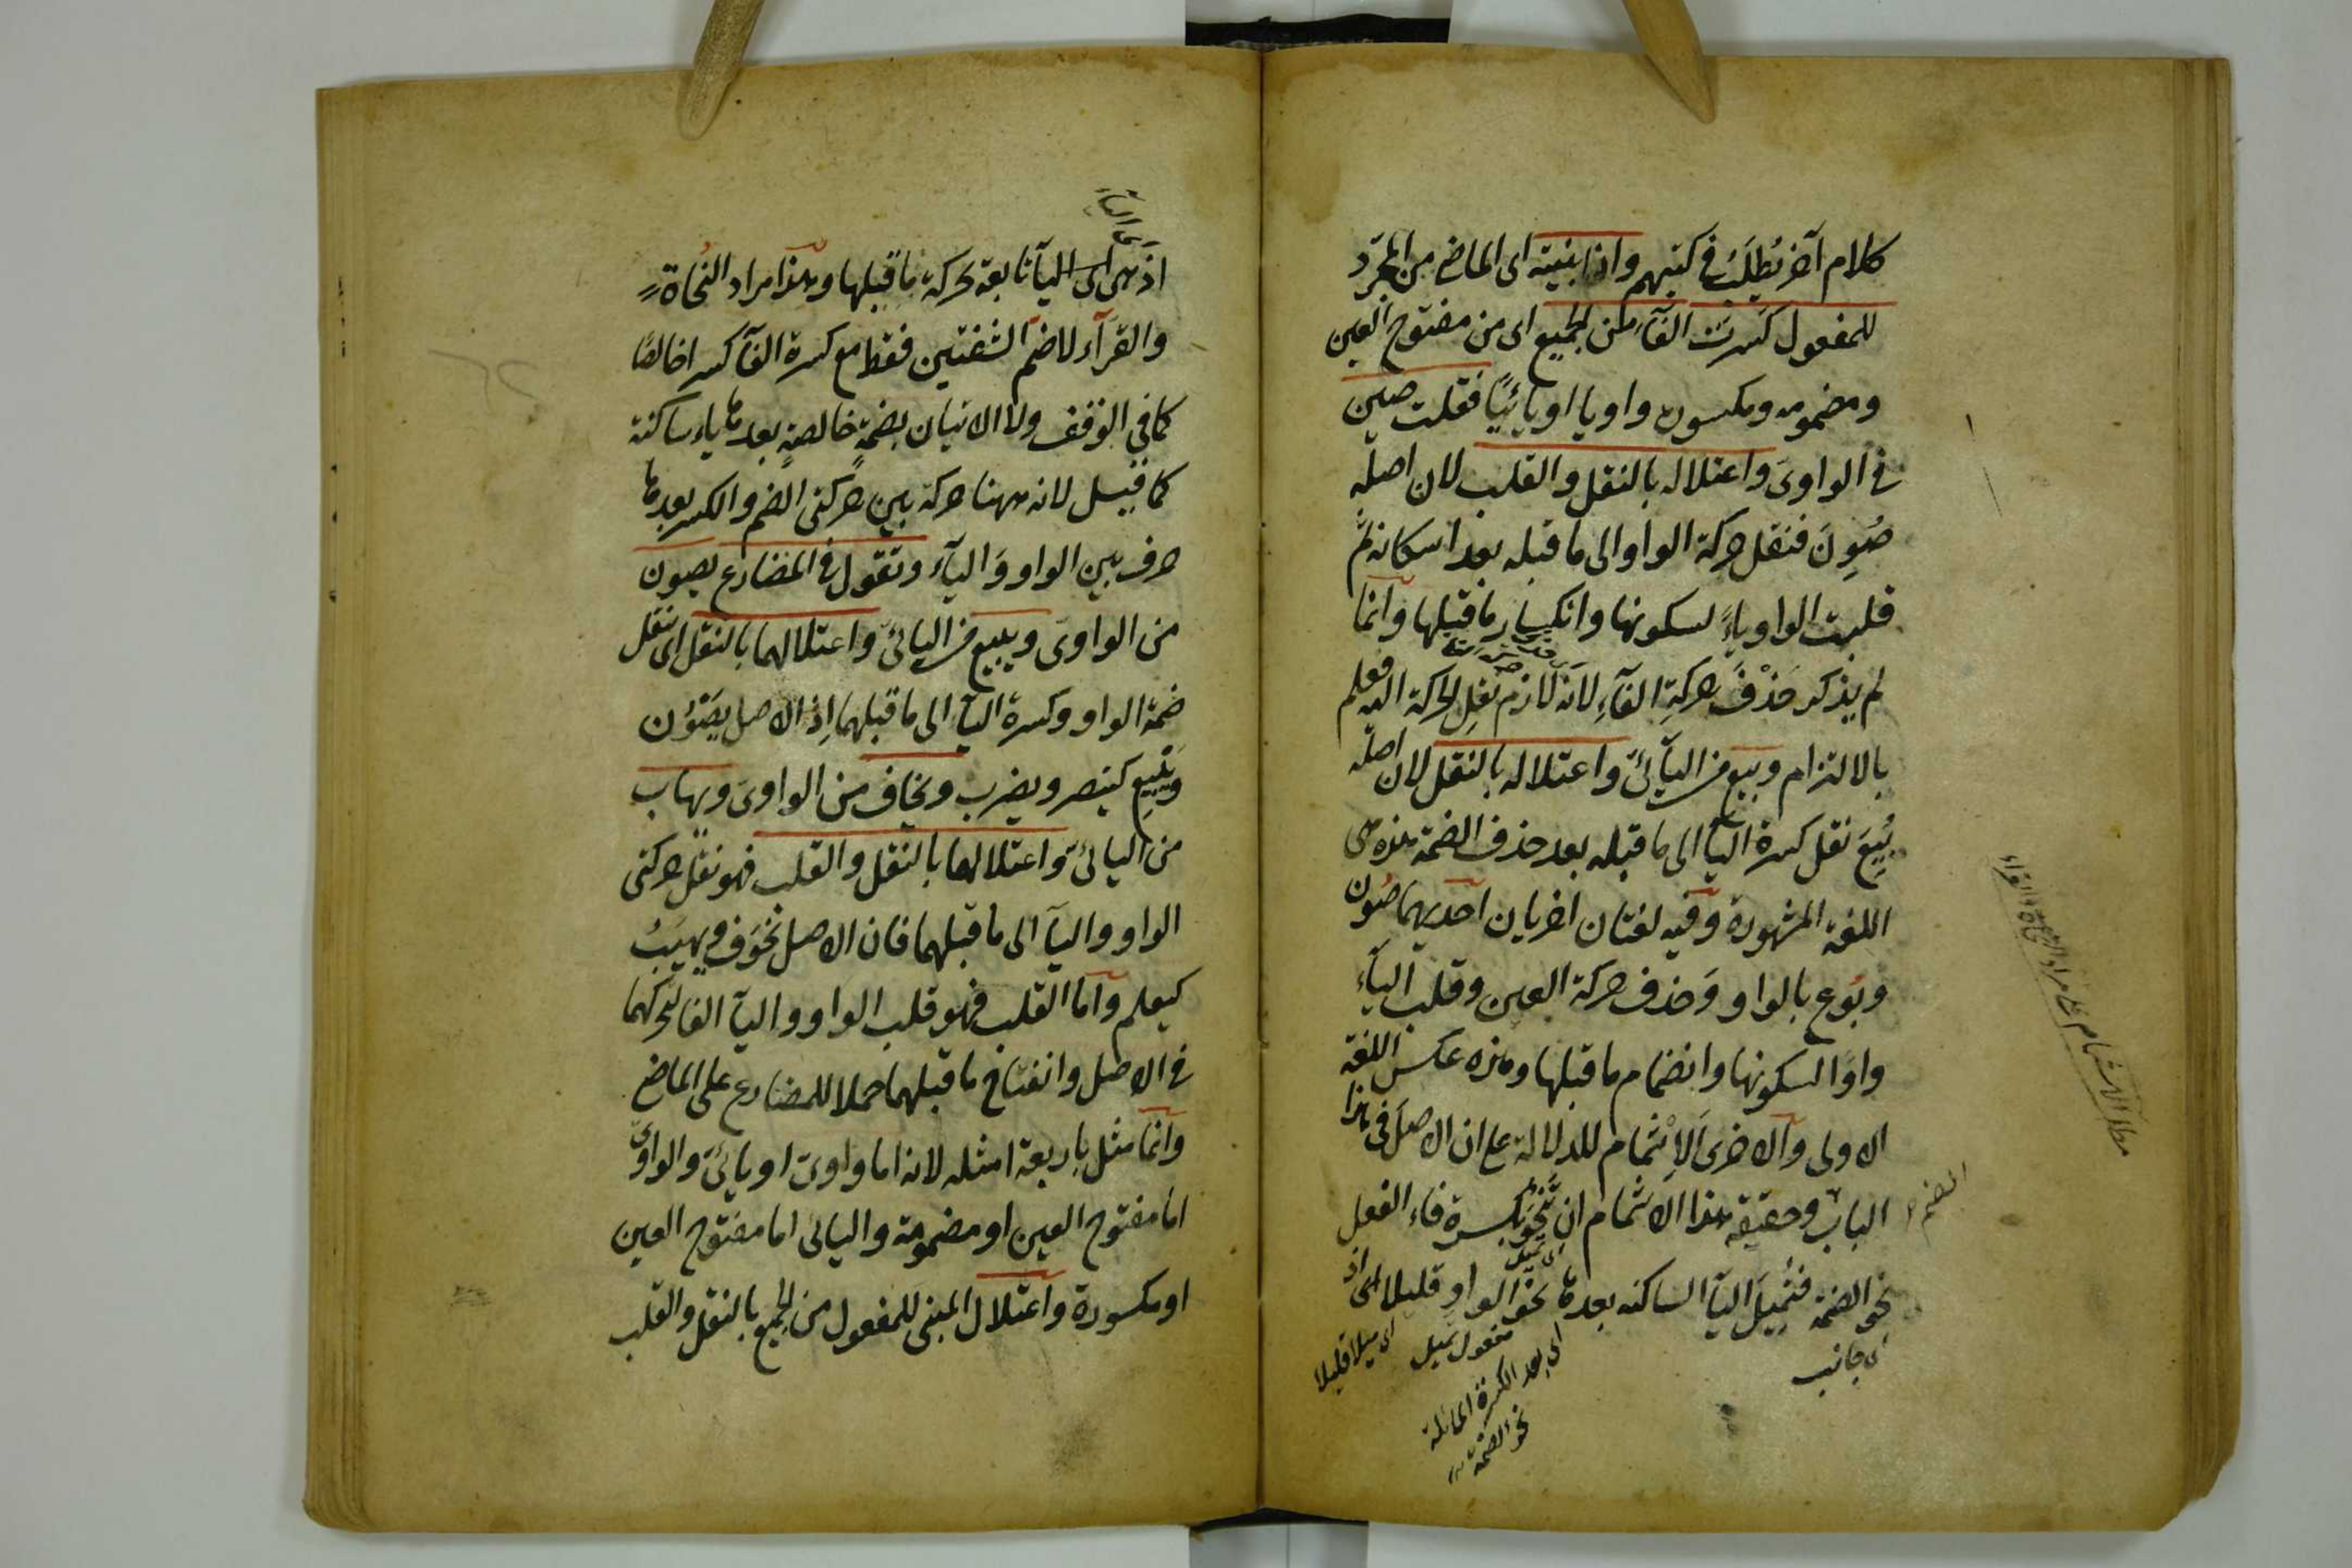 كلام آخر يُطلَبُ في كتبهم واذا بنيته اى الماضى من المجرّد
للمفعول كَسَرتَ الفآء من الجميع اى من مفتوح العين
ومضمومه ومكسوره واويا او يائيًا فقلت صين
في الواوىّ واعتلاله بالنقل والقلب لان اصله
صُوِنَ فنقل حركة الواو الى ما قبله بعد اسكانه ثم
قلبت الواو ياءً لسكونها وانكسار ما قبلها وانما
لم يذكر حَذْفَ حركةِ الفآءِ لانه لازم نقل الحركة اليه فعلم
بالالتزام وبيع من اليآئىّ واعتلاله بالنقل لان اصله
بُيِعَ نقل كسرة اليآ الى ما قبله بعد حذف الضمة هذه هى
اللغة المشهورة وفيه لغتان اخريان احديهما صُون
وبُوع بالواو وحذف حركة العين وقلب اليآء
واوًا لسكونها وانضمام ما قبلها وهذه عكس اللغة
الاولى والاخرى الاِشْمام للدلالة على ان الاصل فى هذا
الباب الضم وحقيقة هذا الاشمام ان تنحو بكسرة فاء الفعل
اى تميل
نحو الضمة فتُمِيلَ اليآ الساكنه بعدها نحو الواو قليلا اى اذ
اى جانب
مفعول تميل
اى ميلا قليلا
اى بعد الكسرة المائلة
نحو الضمة
مطلب الاشمام مراد النحاة والقراء
اى اليآء
اذ هى اى اليآ تابعة لحركة ما قبلها وهذا مراد النُحاة
والقرّآء لا ضم الشفتين فقط مع كسرة الفآ كسرا خالصًا
كما في الوقف ولا الاتيان بضمةٍ خالصةٍ بعدها ياء ساكنة
كما قيل لانه ههنا حركة بين حركتى الضم والكسر بعدها
حرف بين الواو واليآء وتقول في المضارع يصون
من الواوىّ ويبيع من اليائىّ واعتلالهما بالنقل اى نقل
ضمة الواو وكسرة اليآ الى ما قبلهما اِذ الاصل يَصْوُن
ويَبْيِع كينصر ويضرب ويخاف من الواوىّ ويهاب
من اليائىّ واعتلالهما بالنقل والقلب فهو نقل حركتى
الواو واليآ الى ما قبلهما فان الاصل يخوَف ويهيَبُ
كيعلم واما القلب فهو قلب الواو واليآ الفا لتحركهما
في الاصل وانفتاح ما قبلهما حملا للمضارع على الماضى
وانما مثل باربعة امثله لانه اما واوىّ او يائىّ والواوىّ
اما مفتوح العين او مضمومة واليائى اما مفتوح العين
او مكسورة واعتلال المبنى للمفعول من الجميع بالنقل والقلب